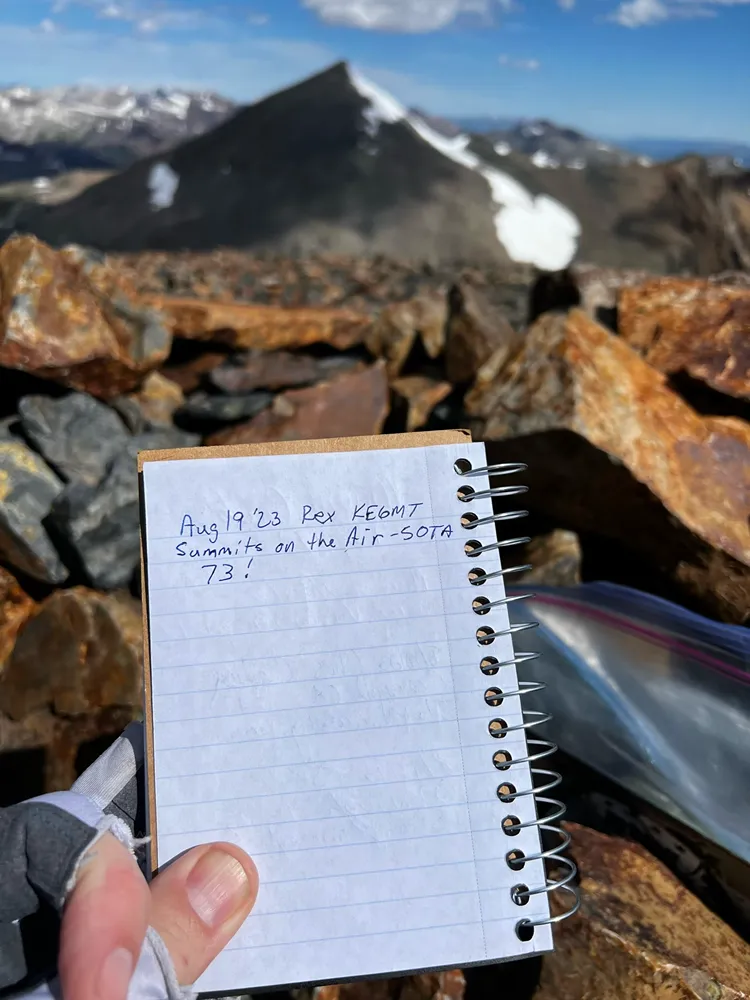 Aug 19 '23 Rex KE6MT
Summits on the Air - SOTA
73!